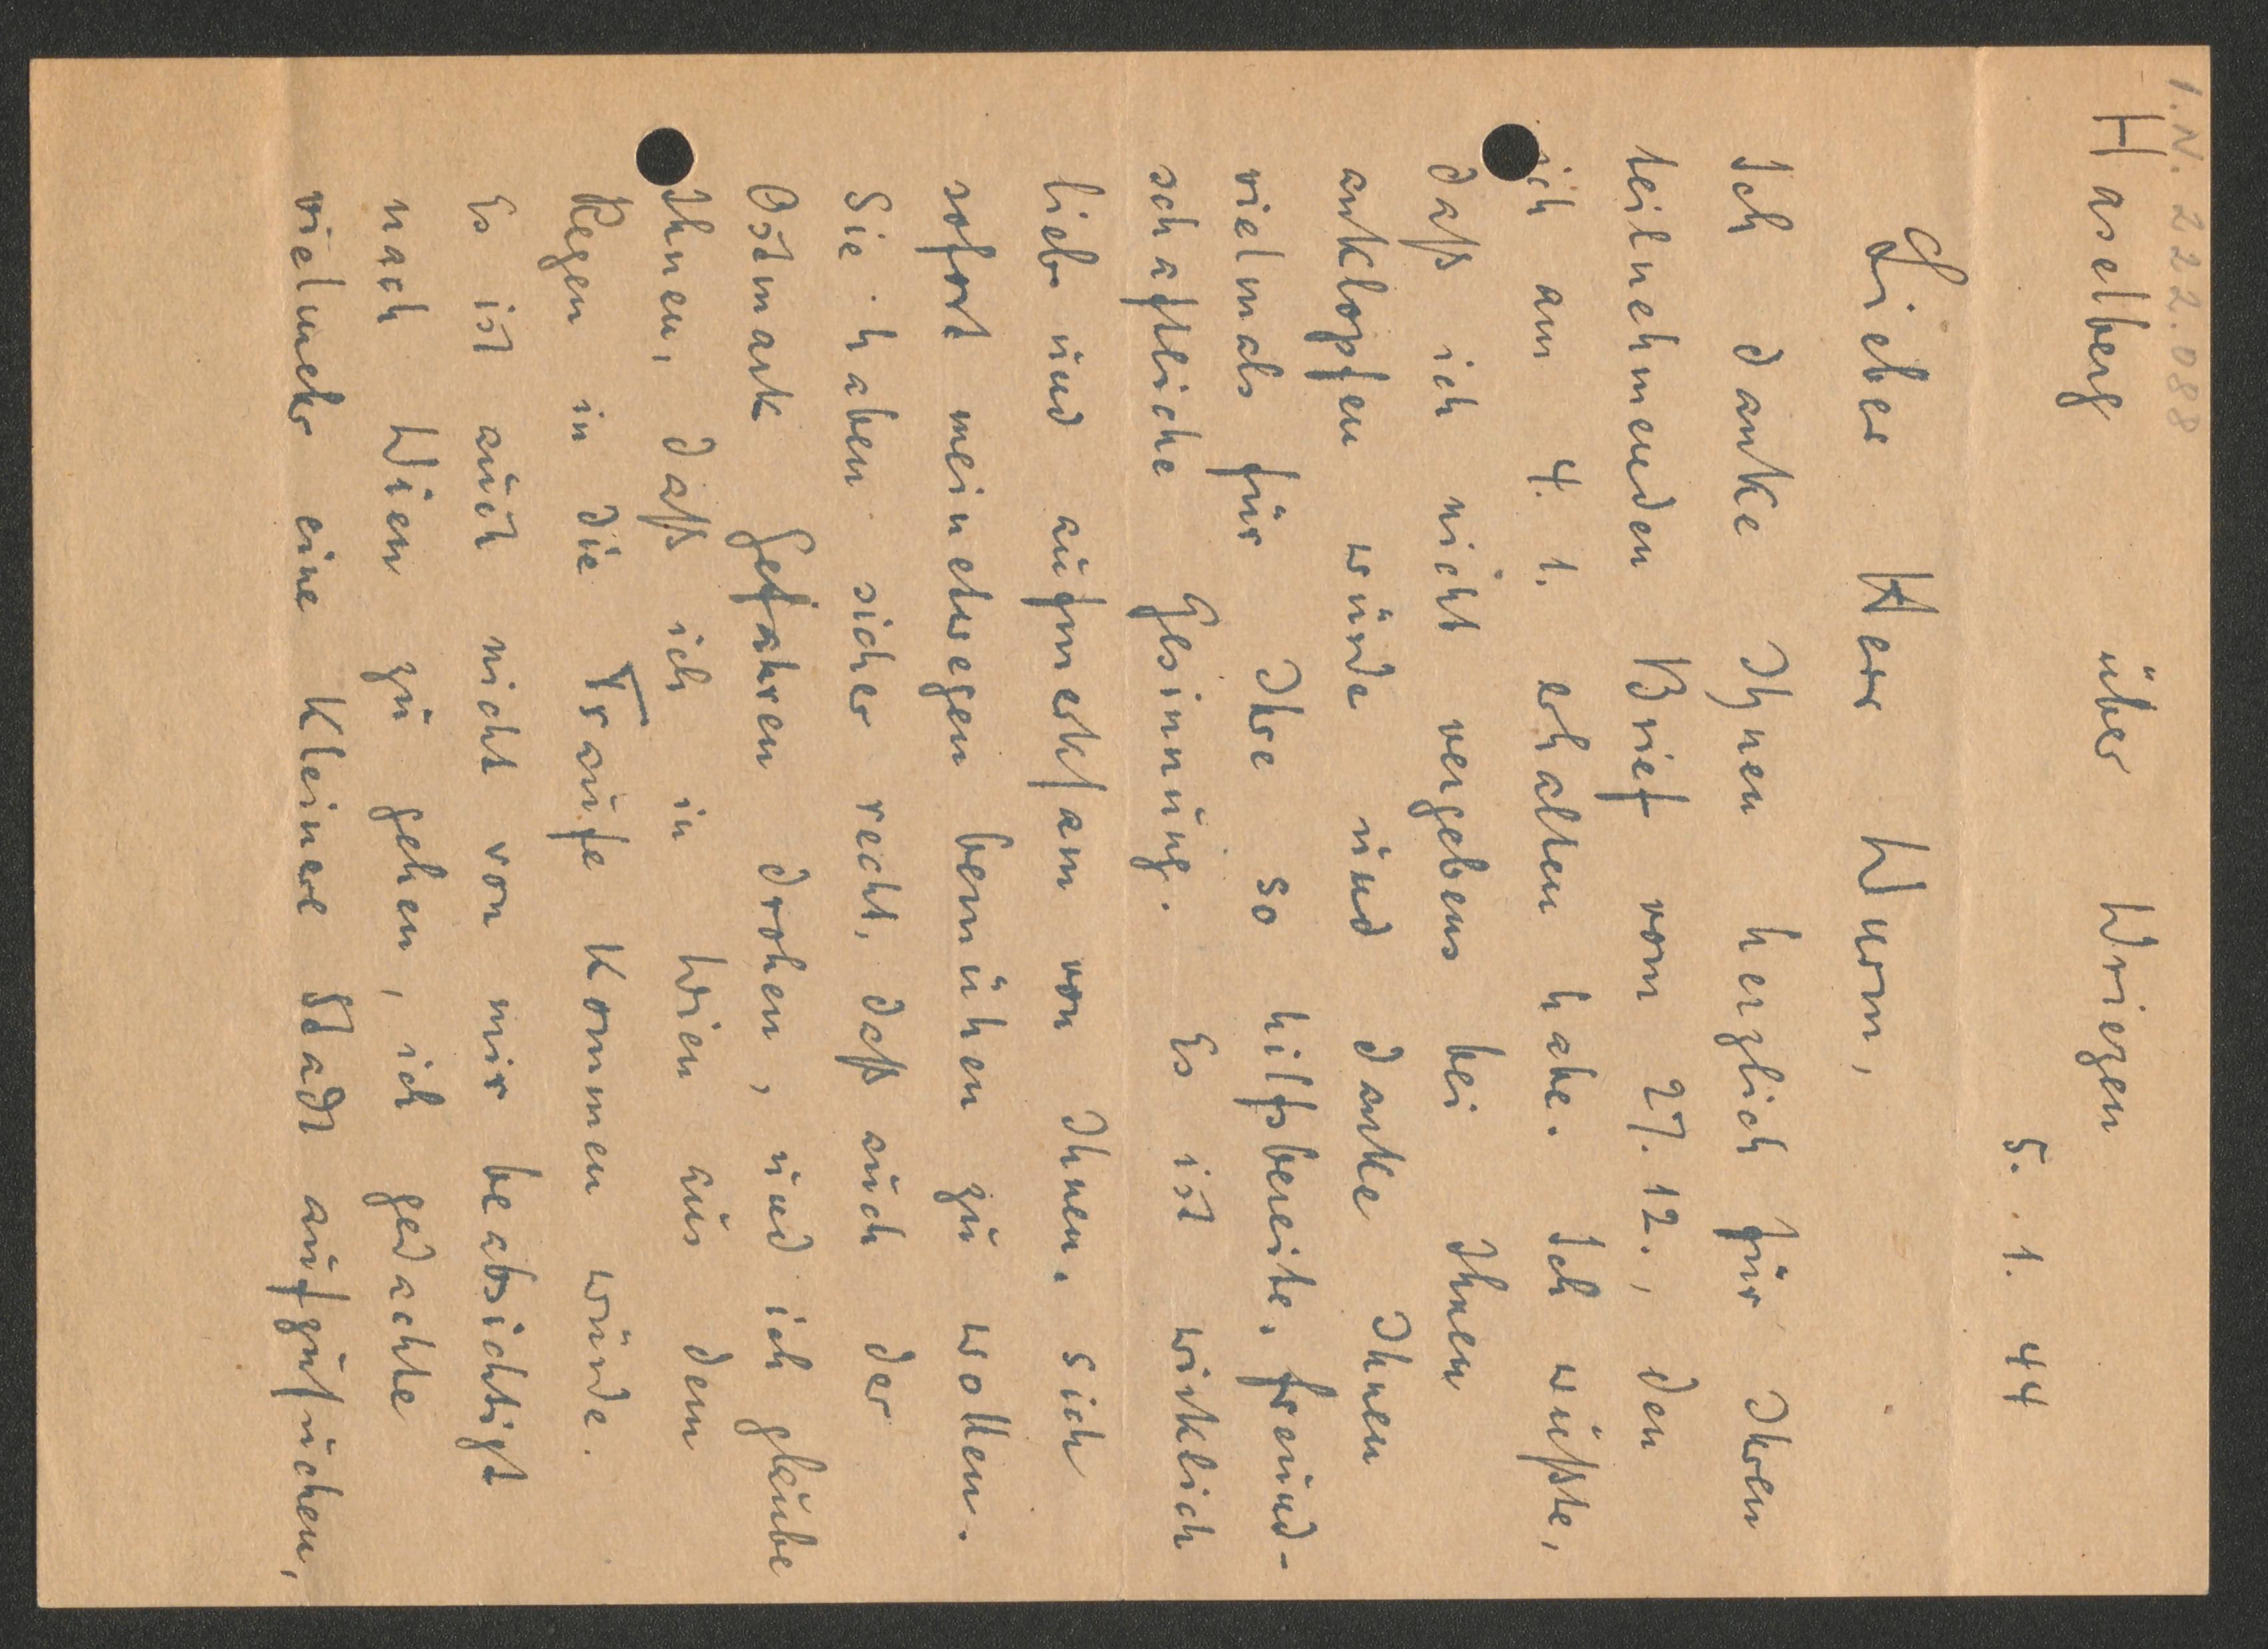 I.N. 222.088
Haselberg über Wriezen
5. 1. 44
Lieber Herr Wurm,
Ich danke Ihnen herzlich für Ihren
teilnehmenden Brief vom 27. 12., den
ich am 4. 1. erhalten habe. Ich wußte,
daß ich nicht vergebens bei Ihnen
anklopfen würde und danke Ihnen
vielmals für Ihre so hilfsbereite, freund-
schaftliche Gesinnung. Es ist wirklich
lieb und aufmerksam von Ihnen, sich
sofort meinetwegen bemühen zu wollen.
Sie haben sicher recht, daß auch der
Ostmark Gefahren drohen, und ich glaube
Ihnen, daß ich in Wien aus dem
Regen in die Traufe kommen würde.
Es ist auch nicht von mir beabsichtigt
nach Wien zu gehen, ich gedachte
vielmehr eine kleinere Stadt aufzusuchen,